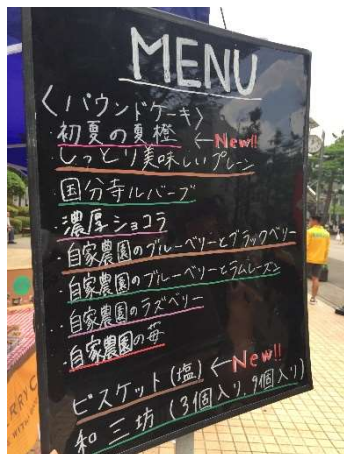 MENU
〈パウンドケーキ〉
・初夏の夏橙 ←New!!
・しっとり美味しいプレーン
・国分寺ルバーブ
・濃厚ショコラ
・自家農園のブルーベリーとブラックベリー
・自家農園のブルーベリーとラムレーズン
・自家農園のラズベリー
・自家農園の苺
ビスケット(塩) ←New!!
和三坊(3個入り、9個入り)